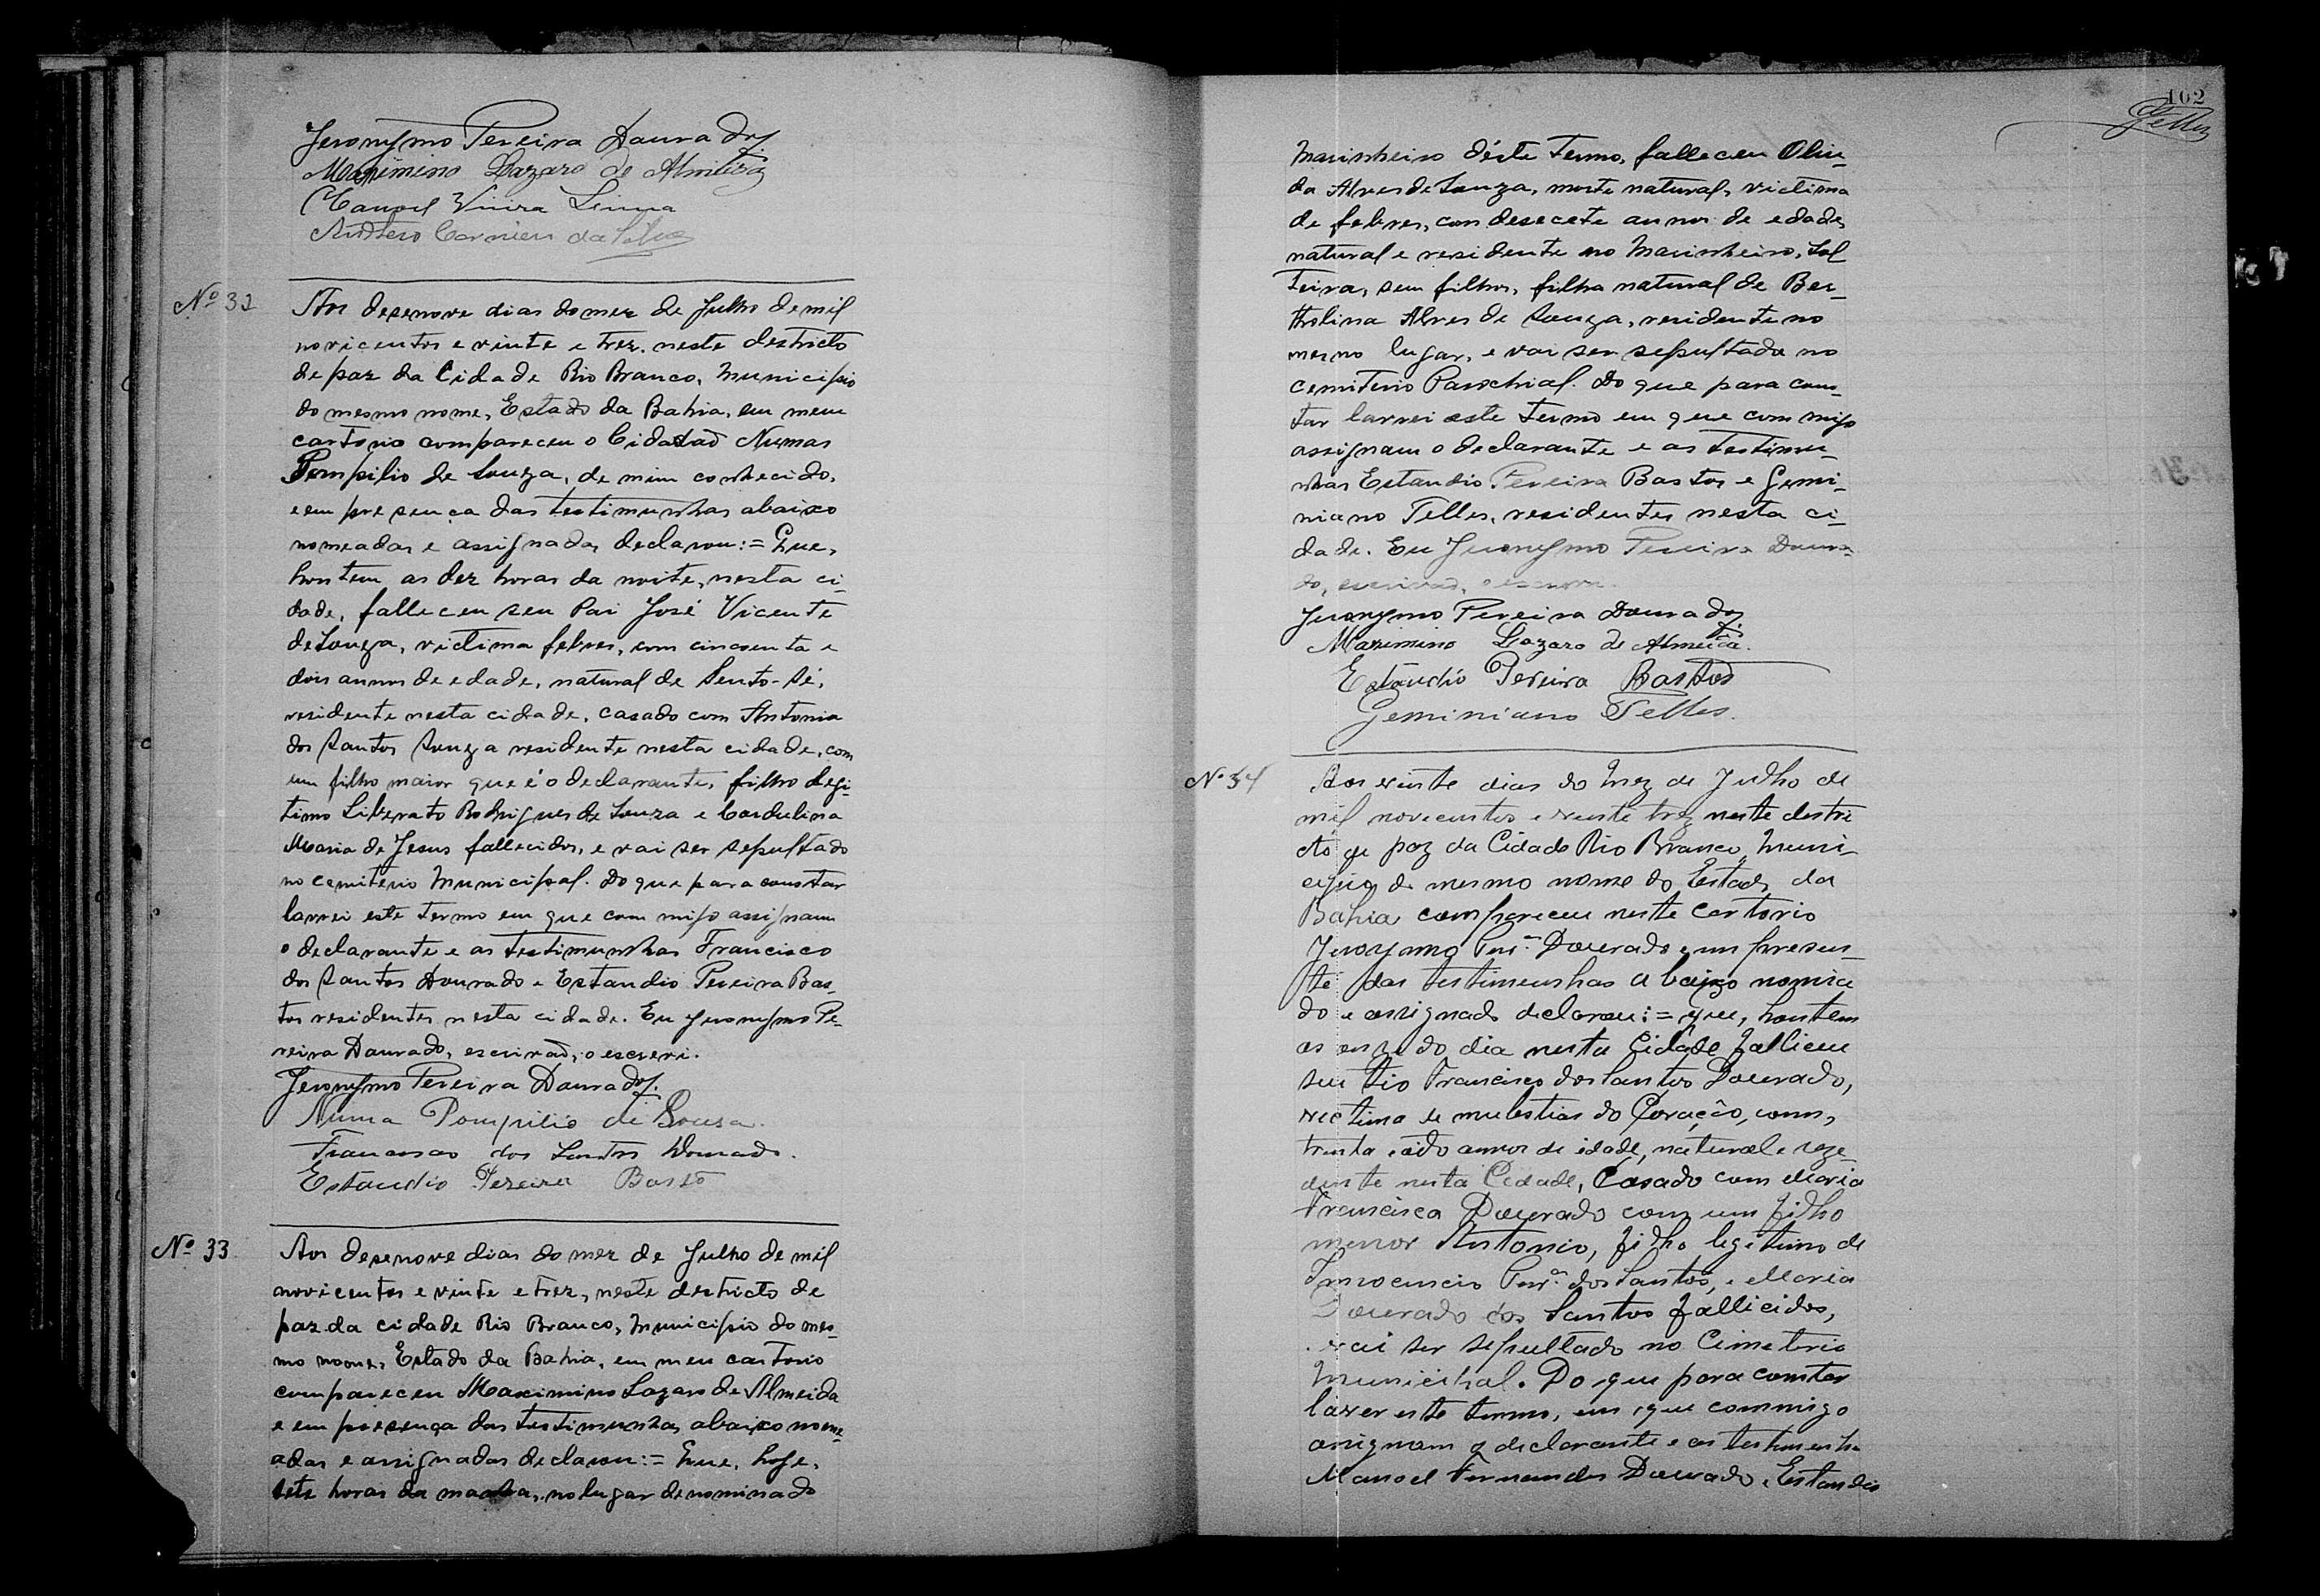 Jeronymo Pereira Dourado
Maximino Lazaro de Almeida
Manoel Vieira Lima
Antero Carneiro da Silva
Nº 32
Aos desenove dias do mez de Julho de mil
novicentos e vinte e trez, neste destricto
de paz da Cidade Rio Branco, Municipio
do mesmo nome, Estado da Bahia, em meu
cartorio compareceu o Cidadão Numas
Pompilio de Souza, de mim conhecido,
e em presença das testimunhas abaixo
nomeadas e assignadas declarou:= Que,
hontem as dez horas da noite, nesta ci-
dade, falleceu seu Pai José Vicente
de Souza, victima febres, com cincoenta e
dois annos de edade, natural de Sento-Sé,
residente nesta cidade, casado com Antonia
dos Santos Souza residente nesta cidade, com
um filho maior que é o declarante, filho legi-
timo Liberato Rodrigues de Souza e Cardulina
Maria de Jesus fallecidos, e vai ser sepultado
no cemiterio Municipal. Do que para constar
lavrei este termo em que com migo assignam
o declarante e as testimunhas Francisco
dos Santos Dourado e Estandio Pereira Bas-
tos residentes nesta cidade. Eu Jeronymo Pe-
reira Dourado, escrivão, o escrevi.
Jeronymo Pereira Dourado
Numa Pompilio de Sousa.
Francisco dos Santos Dourado.
Estandio Pereira Basto
Nº 33
Aos desenove dias do mez de Julho de mil
novicentos e vinte e trez, neste destricto de
paz da cidade Rio Branco, Municipio do mes-
mo nome, Estado da Bahia, em meu cartorio
compareceu Maximino Lazaro de Almeida
e em presença das testimunhas abaixo nome-
adas e assignadas declarou:= Que, hoje,
sete horas da manha, no lugar denominado
102
Telles
Marinheiro déste termo, falleceu Olin-
da Alves de Souza, morte natural, victima
de febres, con desecete annos de edade,
natural e residente no Marinheiro, Sol
teira, sem filhos, filha natural de Ber-
tholina Alves de Souza, residente no
mesmo lugar, e vai ser sepultada no
cemiterio Parochial. Do que para cons-
tar lavrei este termo em que com migo
assignam o declarante e as testimu-
nhas Estandio Pereira Bastos e Gemi-
niano Telles, residentes nesta ci-
dade. Eu Jeronymo Pereira Doura-
do, escrivão, o escrevi.
Jeronymo Pereira Dourado
Maximino Lazaro de Almeida.
Estandio Pereira Bastos
Geminiano Telles.
Nº 34
Aos vinte dias do Mez de Julho de
mil novecentos e vinte trez neste destri
cto de paz da Cidade Rio Branco, Muni-
cipio do mesmo nome do Estado da
Bahia compareceu neste Cartorio
Jeronymo Perª Dourado e em presen-
te das testimunhas a baixo nomia
do e assignado declarou:= que, hontem
as onze do dia nesta Cidade falleceu
seu tio Francisco dos Santos Dourado,
victima de mulestias do Coração, com,
trinta e oito annos de idade, natural e reze
dente nesta Cidade, Casado com Maria
Francisca Dourado com um filho
menor Antonio, filho legitimo de
Innocencio Perª dos Santos, e Maria
Dourado dos Santos fallicidos,
vai ser sepultado no Cimeterio
Municihal. Do que para constar
laver este termo, em que commigo
asignam o declarante e as testimenha
Manoel Fernandes Dourado, Estandio